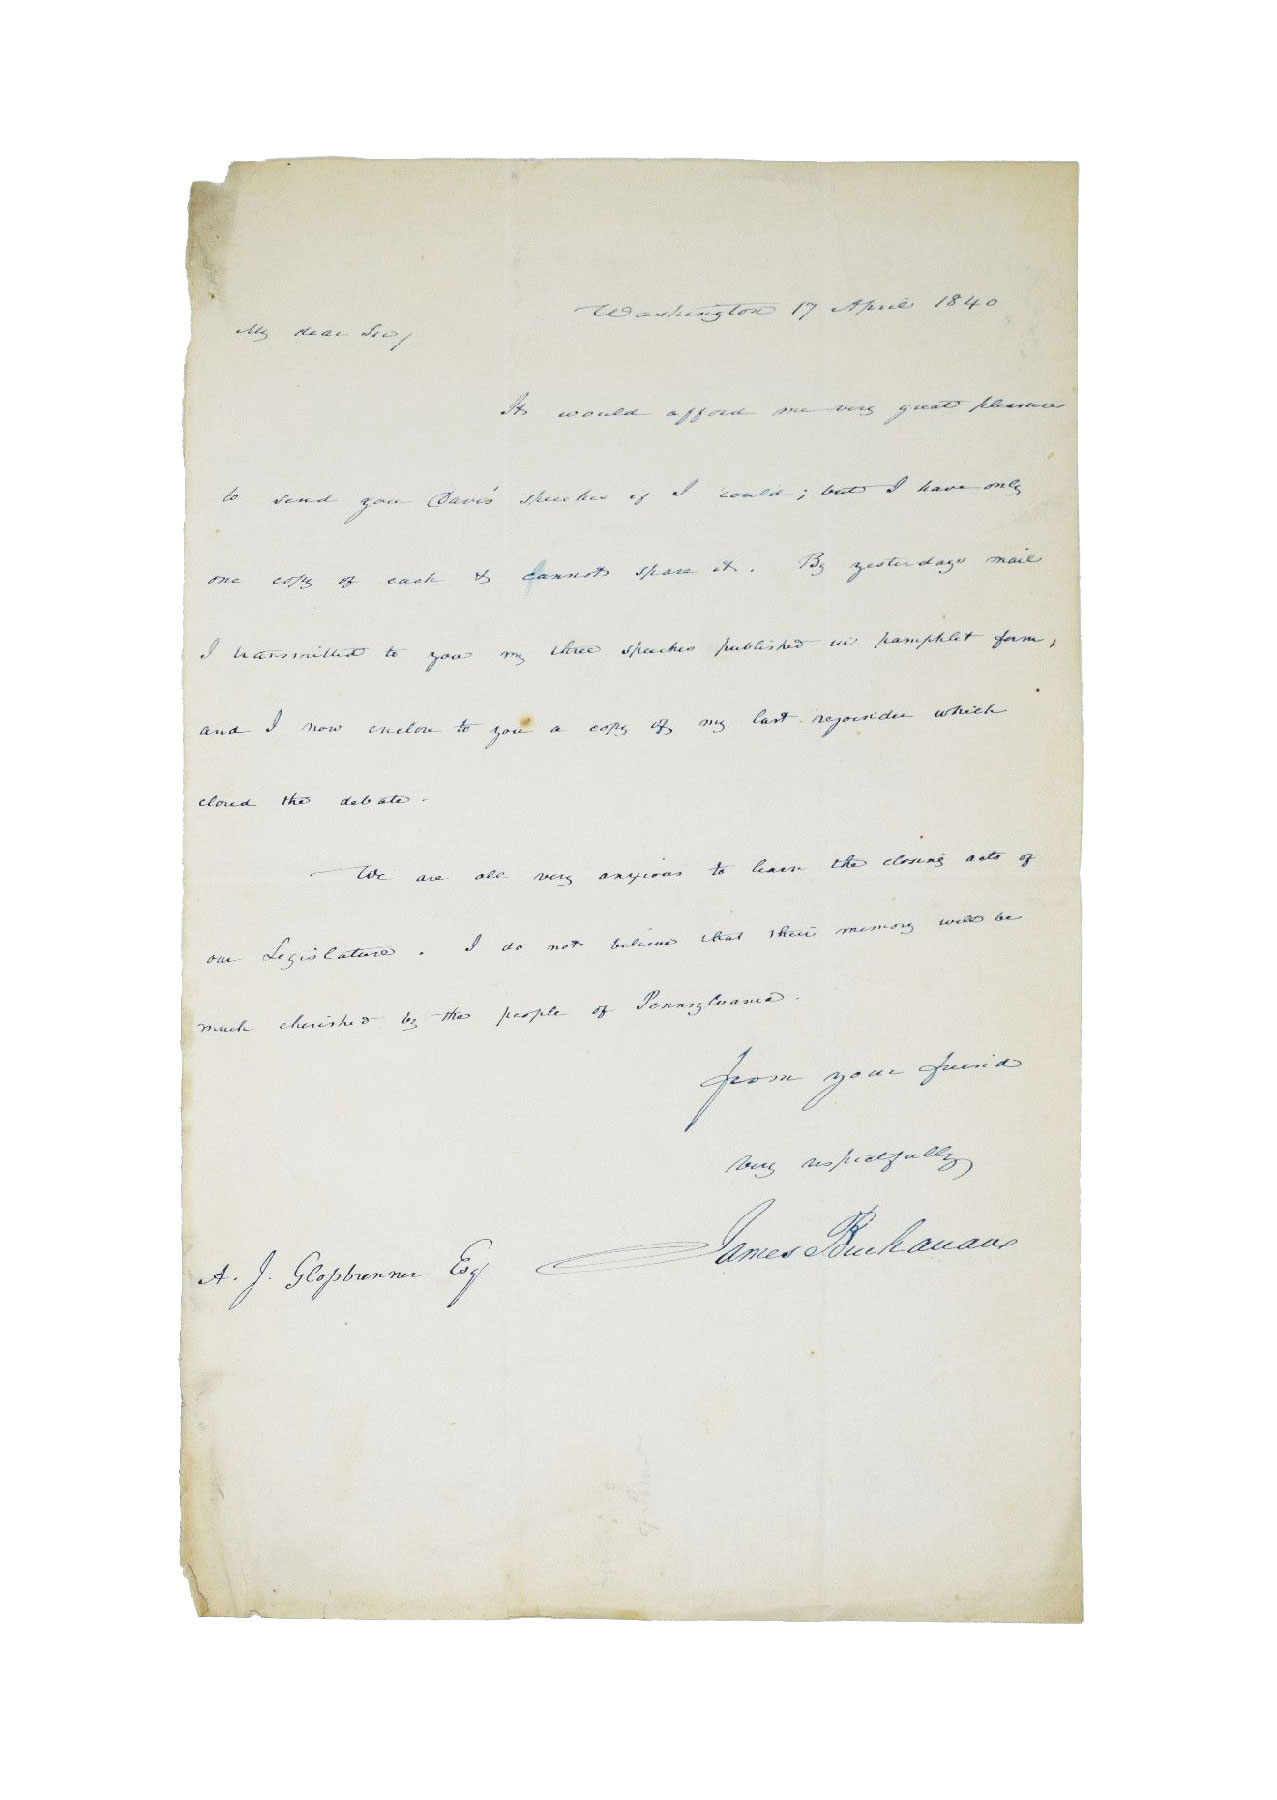 Washington 17 April 1840
My dear Sir/
It would afford me very great pleasure
to send you Davis' speeches if I could; but I have only
one copy of each & cannot spare it. By yesterdays mail
I transmitted to you my three speeches published in pamphlet form,
and I now enclose to you a copy of my last rejoinder which
closed the debate.
We are all very anxious to learn the closing acts of
our Legislature. I do not believe that their memory will be
much cherished by the people of Pennsylvania.
from your friend
very respectfully
James Buchanan
A. J. Glossbrenner Esq